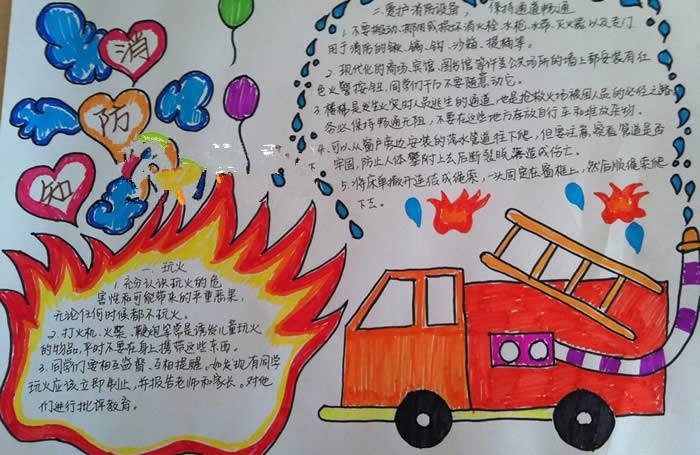 消
防
知
二.爱护消防设备，保持通道畅通
1.不要搬动、挪用或损坏消火栓、水枪、水带、灭火器以及专门
用于消防的锹、镐、钩、沙箱、提桶等。
2.现代化的商场、宾馆、图书馆等许多公共场所的墙上都安装有红
色火警按钮，同学们千万不要随意动它。
3.楼梯是发生火灾时人员逃生的通道，也是抢救火场被困人员的必经之路，
务必保持畅通无阻，不要在这些地方存放自行车和堆放杂物。
4.可以从窗户旁边安装的落水管道往下爬，但要注意，察看管道是否
牢固，防止人体攀附上去后断裂脱落造成伤亡。
5.将床单撕开连结成绳索，一头固定在窗框上，然后顺绳索爬
下去。
一.玩火
1.充分认识玩火的危
害性和可能带来的严重恶果，
无论任何时候都不玩火。
2.打火机、火柴、鞭炮等常是诱发儿童玩火
的物品，平时不要在身上携带这些东西。
3.同学们要相互监督、互相提醒。如发现有同学
玩火应该立即制止，并报告老师和家长。对他
们进行批评教育。